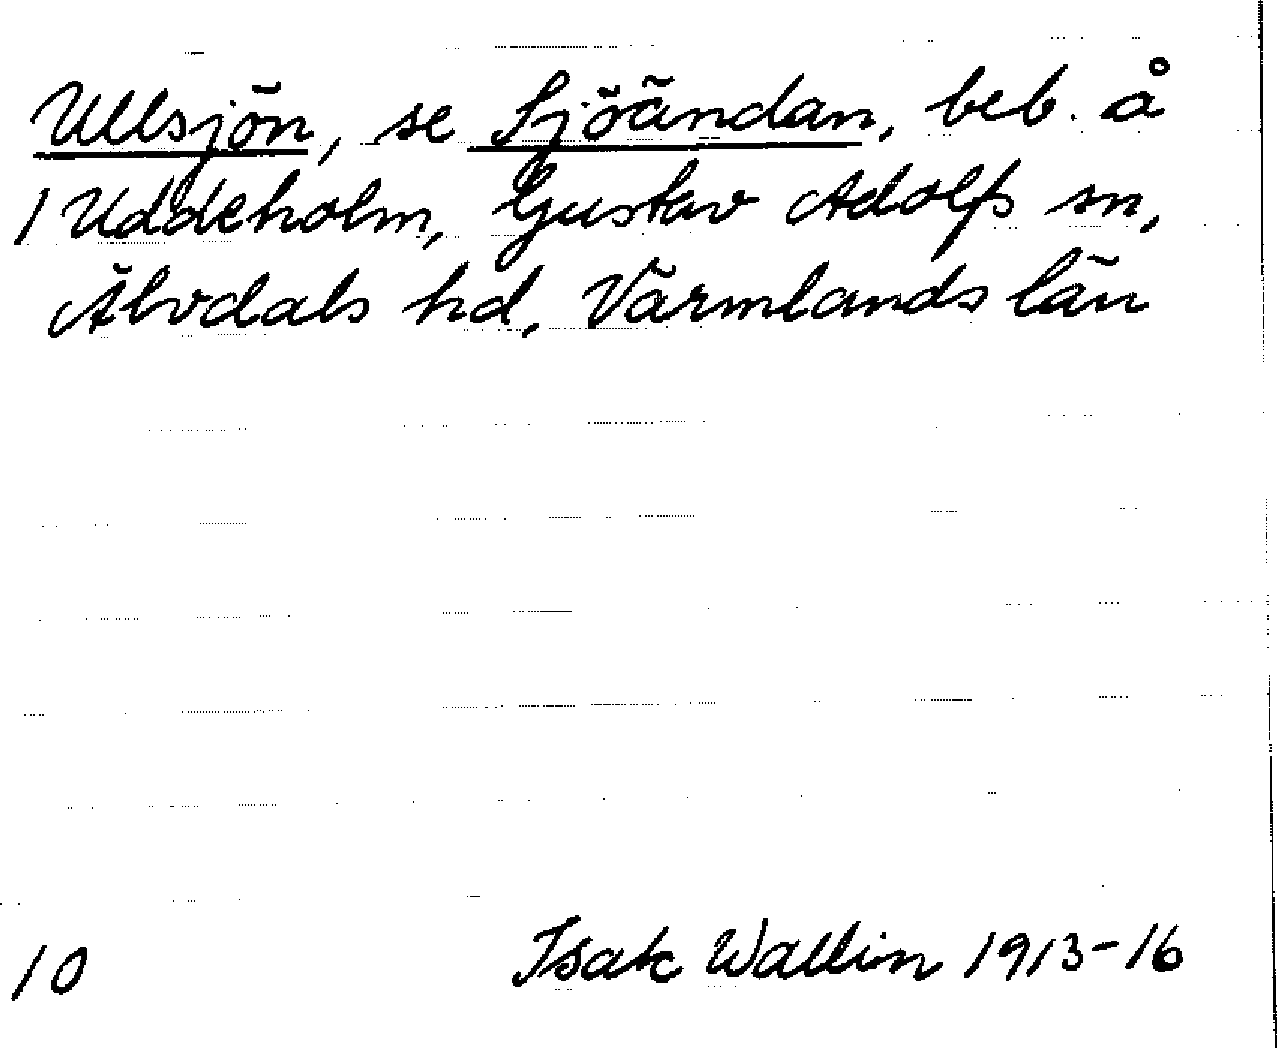 Ullsjön, se Sjöändan, beb. å
1 Uddeholm, Gustav Adolfs sn,
Älvdals hd, Värmlands län
10 Isak Wallin 1913-16